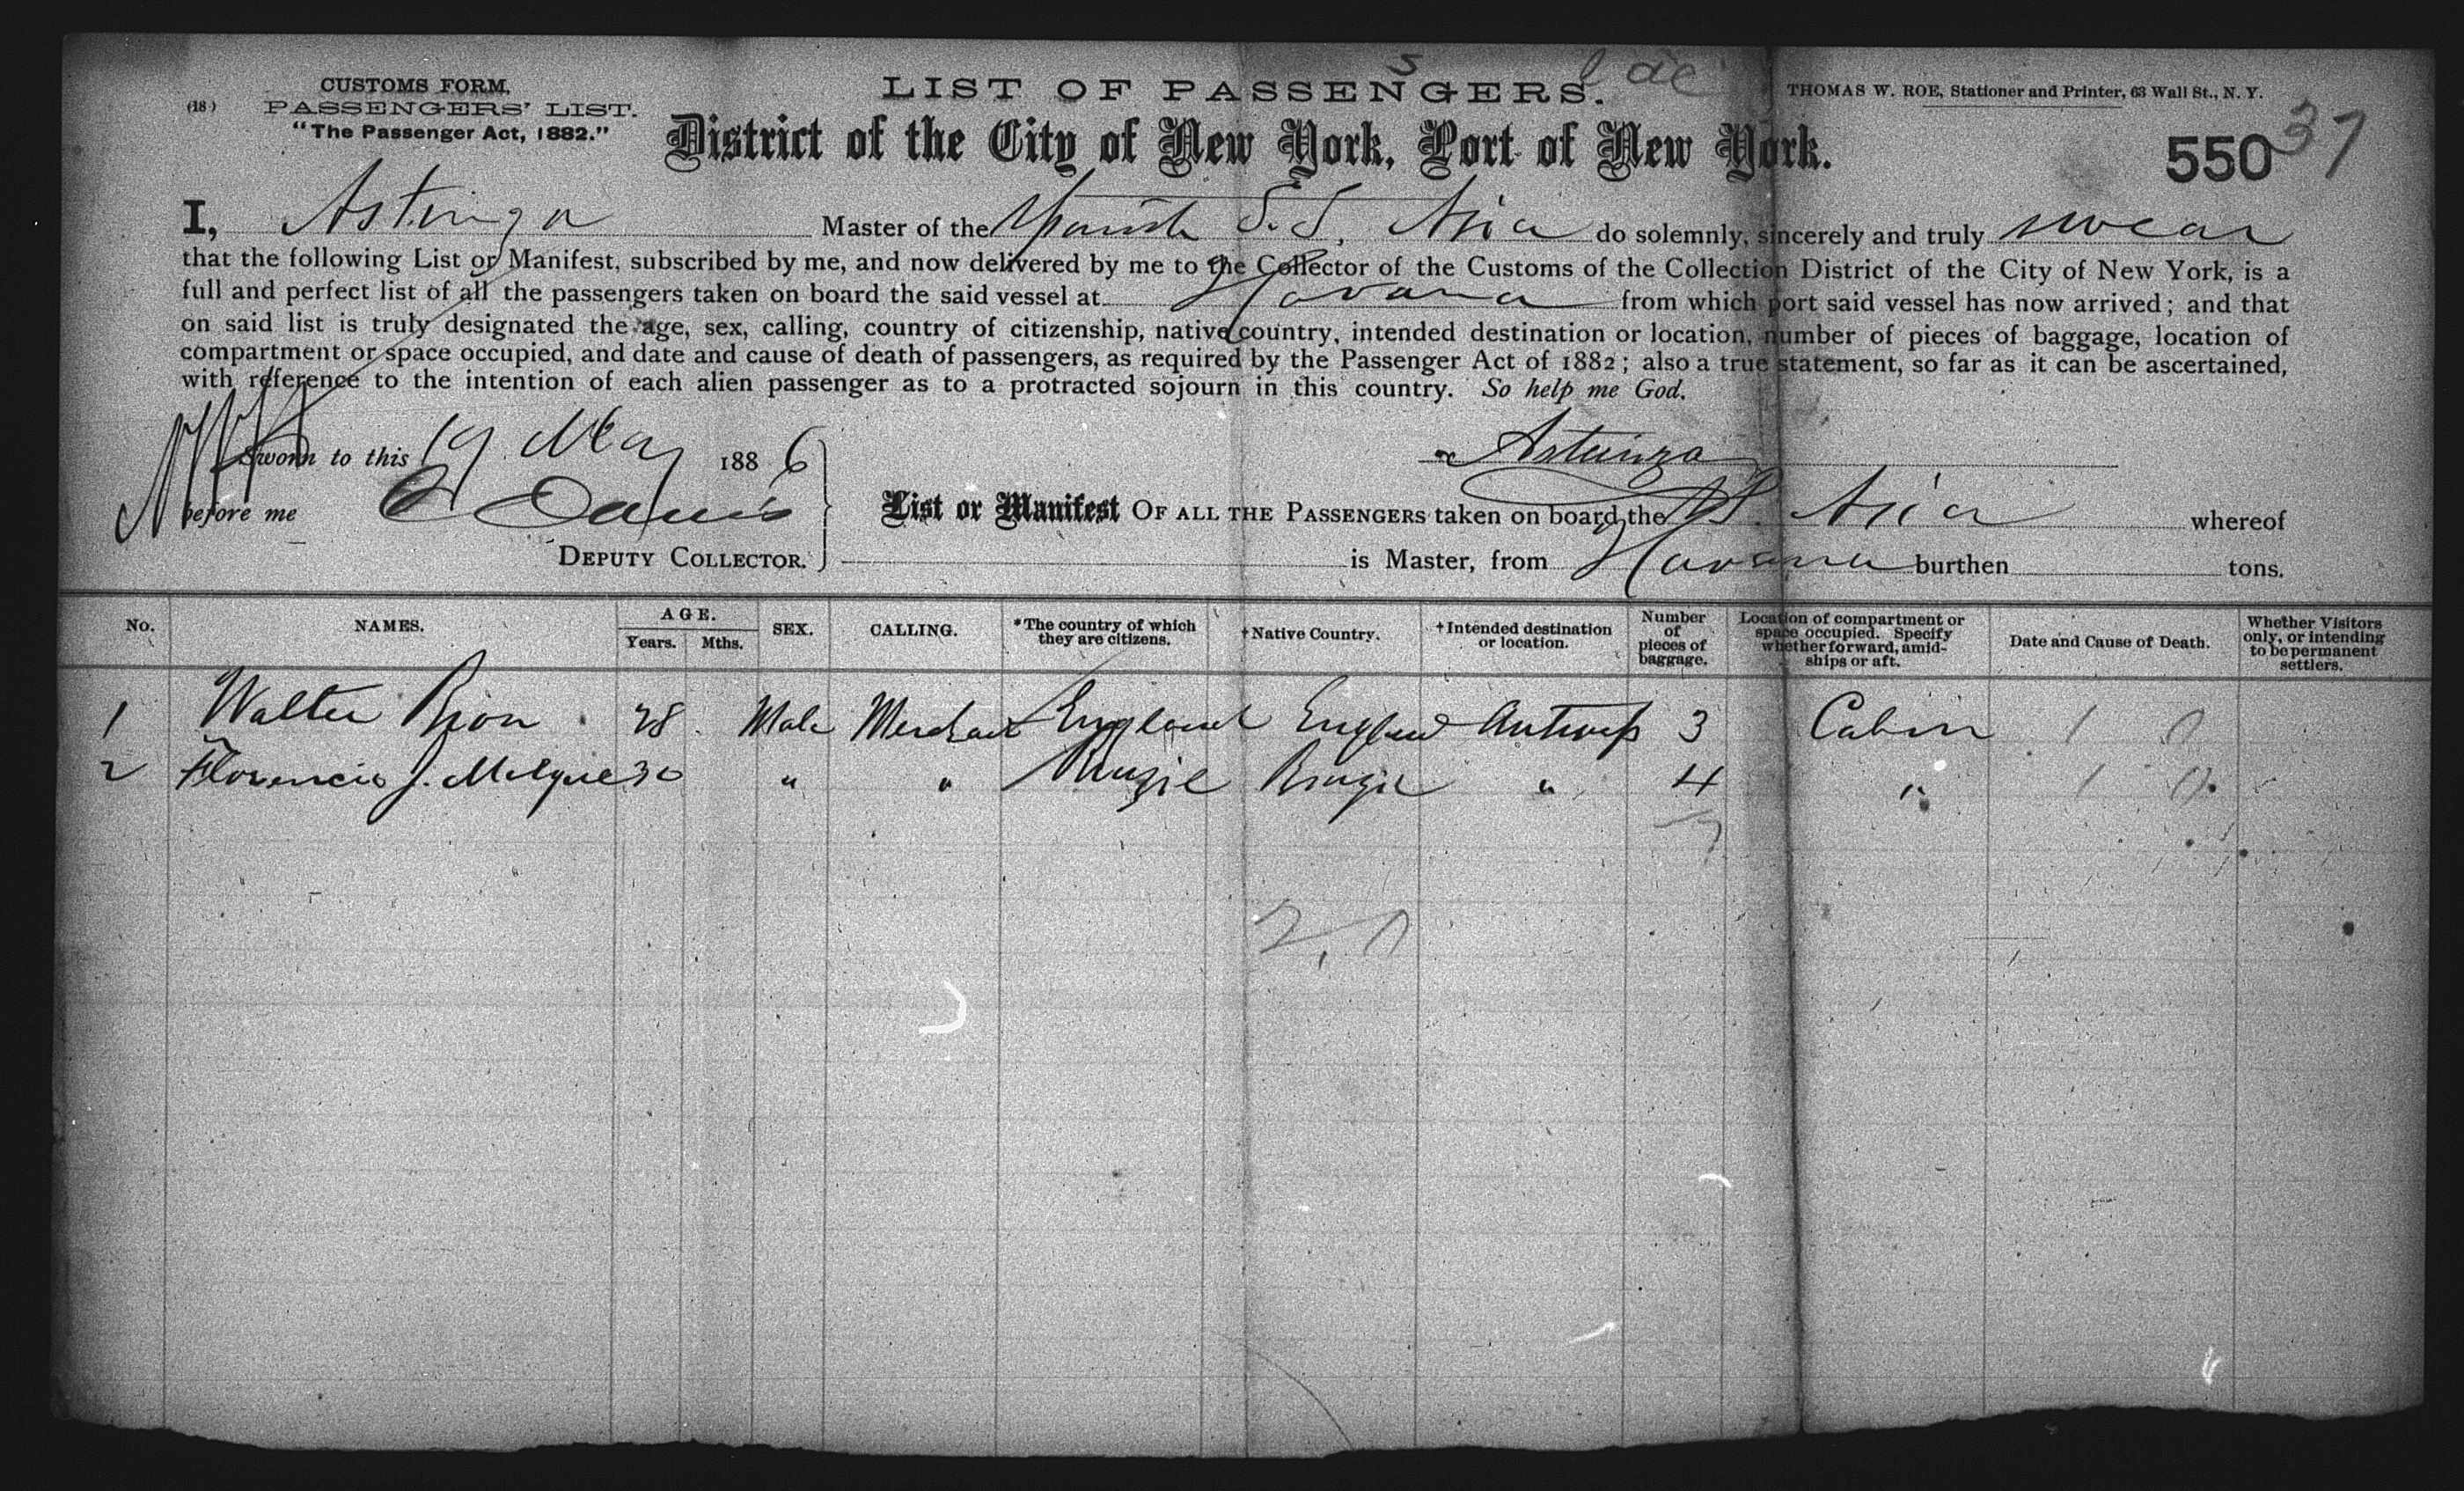 CUSTOMS FORM.
(18)
PASSENGERS' LIST.
"The Passenger Act, 1882."
LIST OF PASSENGERS.
THOMAS W. ROE, Stationer and Printer, 63 Wall St., N. Y.
District of the City of New York, Port of New York.
550
37
I, Astuinza Master of the Spanish S.S. Asia do solemnly, sincerely and truly swear
that the following List or Manifest, subscribed by me, and now delivered by me to the Collector of the Customs of the Collection District of the City of New York, is a
full and perfect list of all the passengers taken on board the said vessel at Havana from which port said vessel has now arrived; and that
on said list is truly designated the age, sex, calling, country of citizenship, native country, intended destination or location, number of pieces of baggage, location of
compartment or space occupied, and date and cause of death of passengers, as required by the Passenger Act of 1882; also a true statement, so far as it can be ascertained,
with reference to the intention of each alien passenger as to a protracted sojourn in this country. So help me God.
Sworn to this 19 May 1886
Astuinza
before me C Davis
DEPUTY COLLECTOR.
List or Manifest OF ALL THE PASSENGERS taken on board the S.S. Asia whereof
is Master, from Havana burthen tons.
No. NAMES. AGE. Years. Mths. SEX. CALLING. *The country of which they are citizens. †Native Country. †Intended destination or location. Number of pieces of baggage. Location of compartment or space occupied. Specify whether forward, amidships or aft. Date and Cause of Death. Whether Visitors only, or intending to be permanent settlers.
1 Walter 28 Male Merchant England England Antwerp 3 Cabin 1 0
2 Florencio J. 30 " " Brazil Brazil " 4 " 1 0
7
2,0